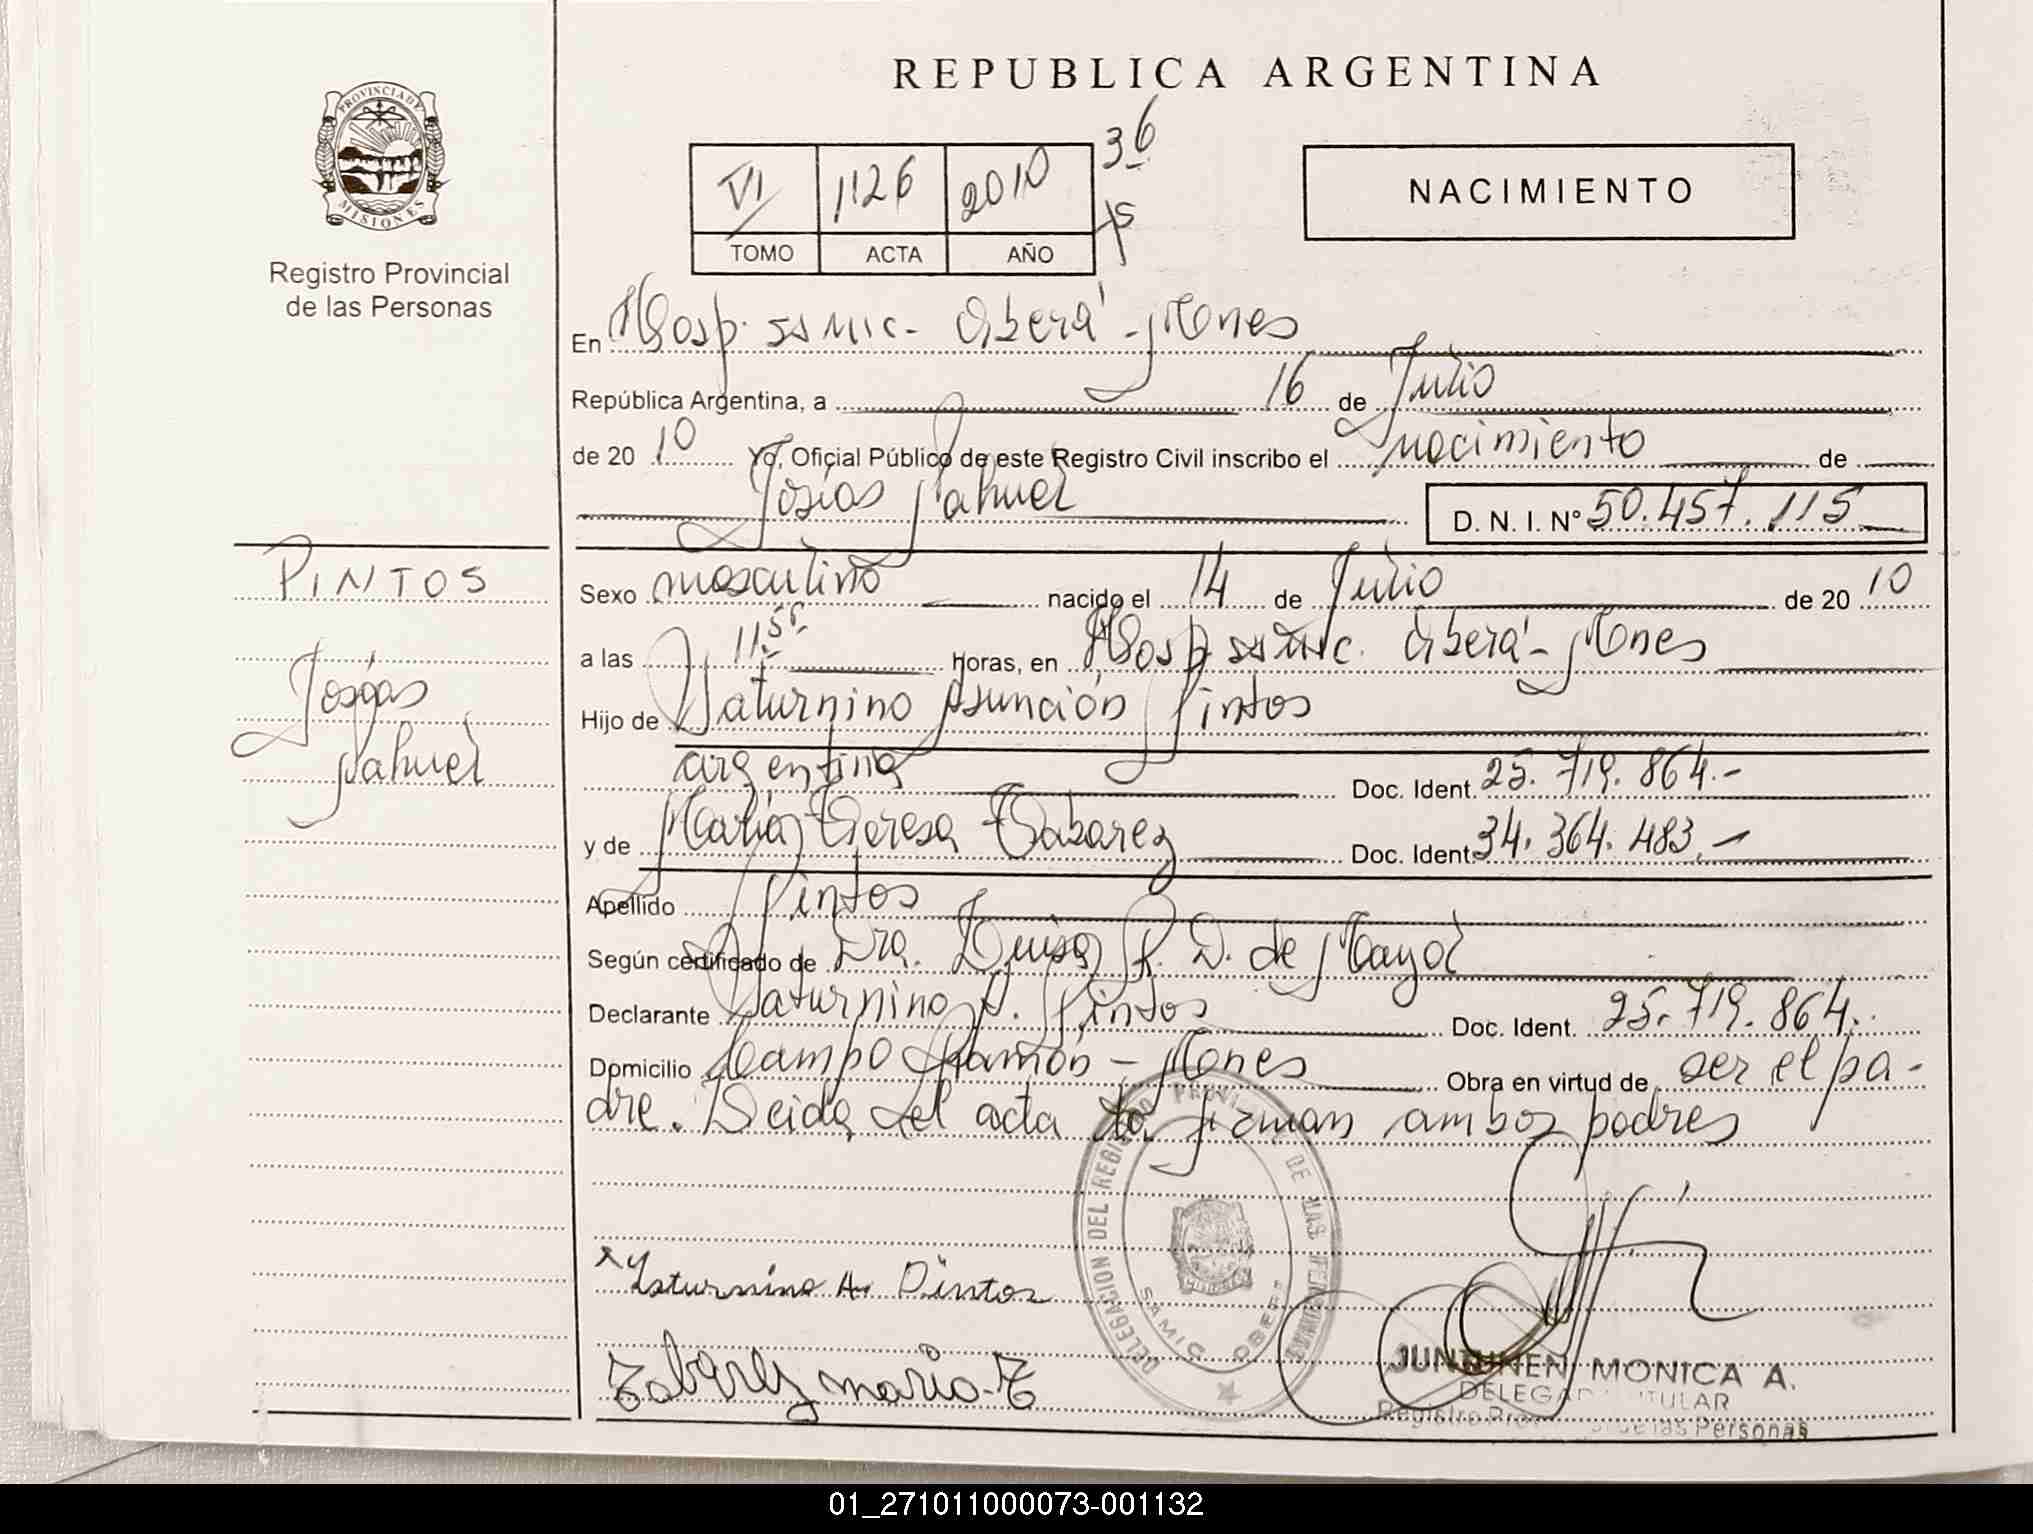 REPUBLICA ARGENTINA
PROVINCIA DE
MISIONES
Registro Provincial
de las Personas
VI 1126 2010 36
TOMO ACTA AÑO
NACIMIENTO
En Hosp. SAMIC - Oberá - Mones
República Argentina, a 16 de Julio
de 20 10 Yo, Oficial Público de este Registro Civil inscribo el nacimiento de
Josías Nahuel D. N. I. Nº 50.457.115
PINTOS
Josías
Nahuel
Sexo masculino nacido el 14 de Julio de 20 10
a las 11 Horas, en Hosp SAMIC. Oberá - Mones
Hijo de Saturnino Asunción Pintos
argentina Doc. Ident. 25.719.864.-
y de María Teresa Tabarez Doc. Ident. 34.364.483.-
Apellido Pintos
Según certificado de Dra. Luisa R. D. de Mayol
Declarante Saturnino A. Pintos Doc. Ident. 25.719.864.
Domicilio Campo Ramón - Mones Obra en virtud de ser el pa-
dre. Leida el acta la firman ambos padres
DELEGACION DEL REGISTRO PROVINCIAL DE LAS PERSONAS
SAMIC OBERA
x Saturnino A. Pintos
Tabarez maria T
JUNTUNEN MONICA A.
DELEGADA TITULAR
Registro Provincial de las Personas
01_271011000073-001132